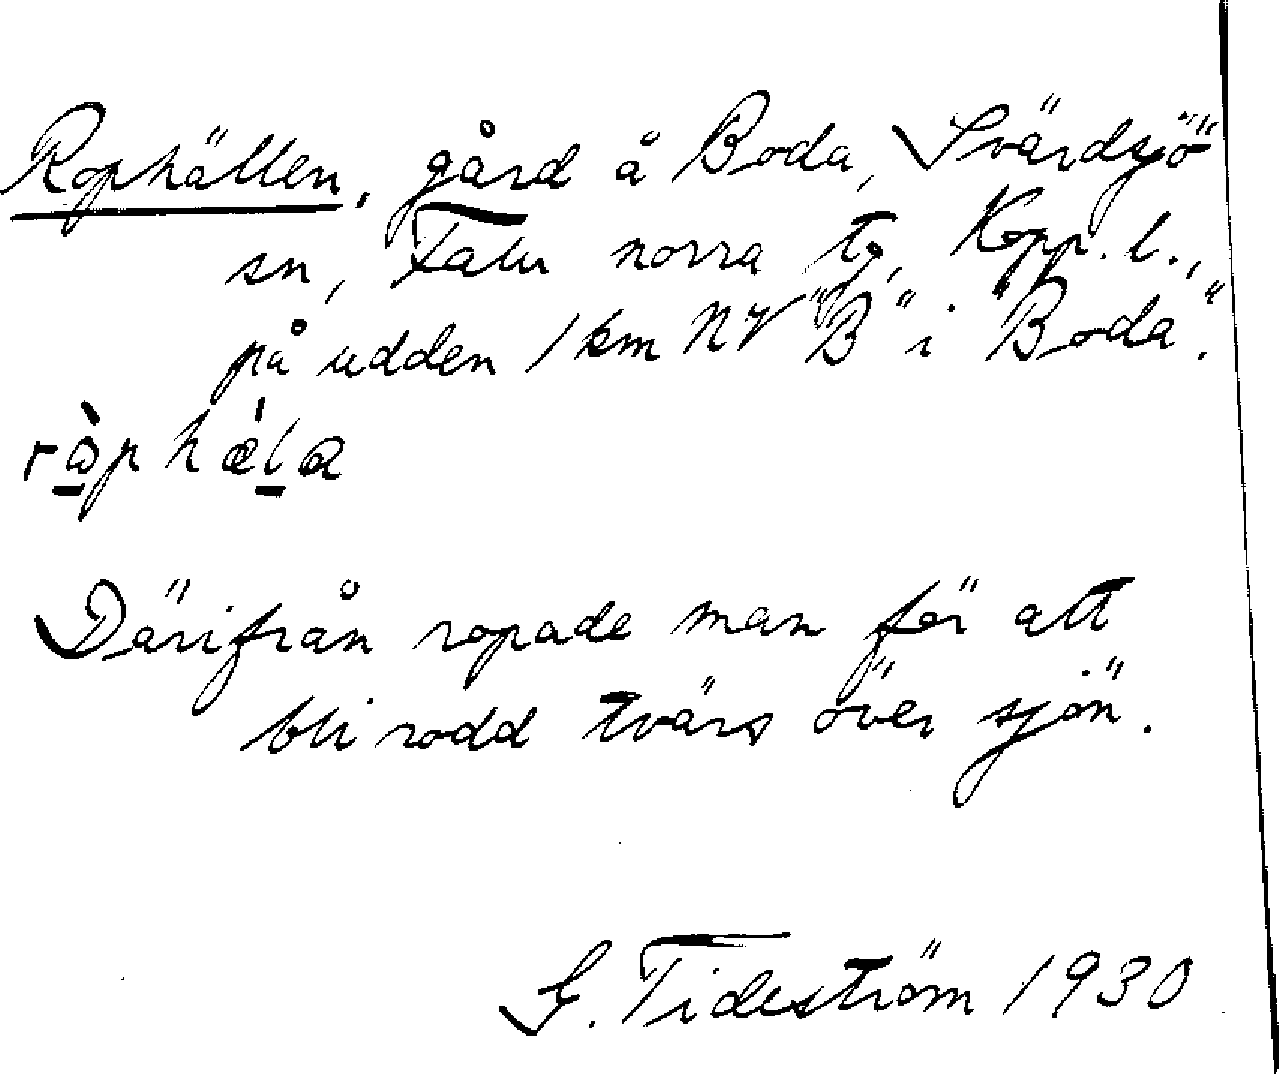 Rophällen, gård å Boda, Svärdsjö
sn, Falu norra tg, Kopp. l.,
på udden 1 km NV "B" i "Boda".
Därifrån ropade man för att
bli rodd tvärs över sjön.
G. Tideström 1930